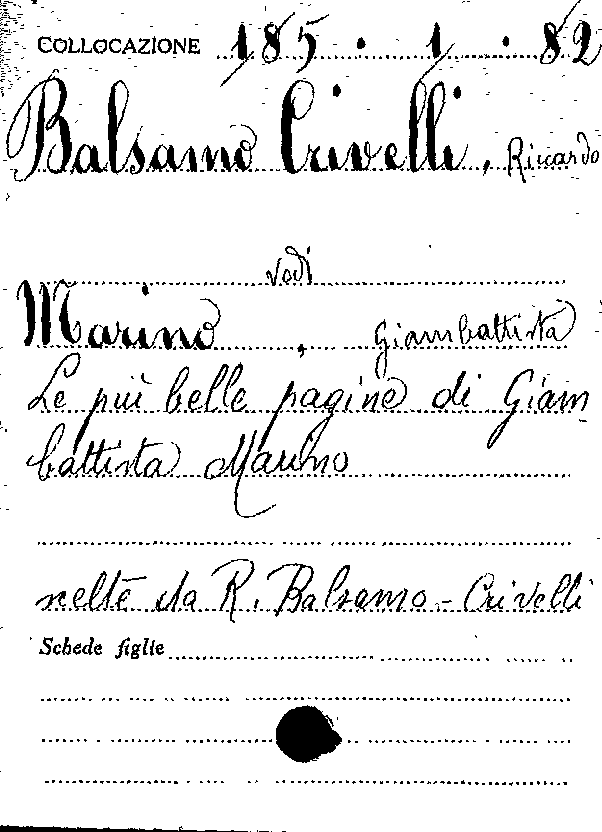 COLLOCAZIONE 185 . 1 . 82
Balsamo Crivelli, Riccardo
vedi
Marino, Giambattista
Le più belle pagine di Giam
battista Marino
scelte da R. Balsamo-Crivelli
Schede figlie